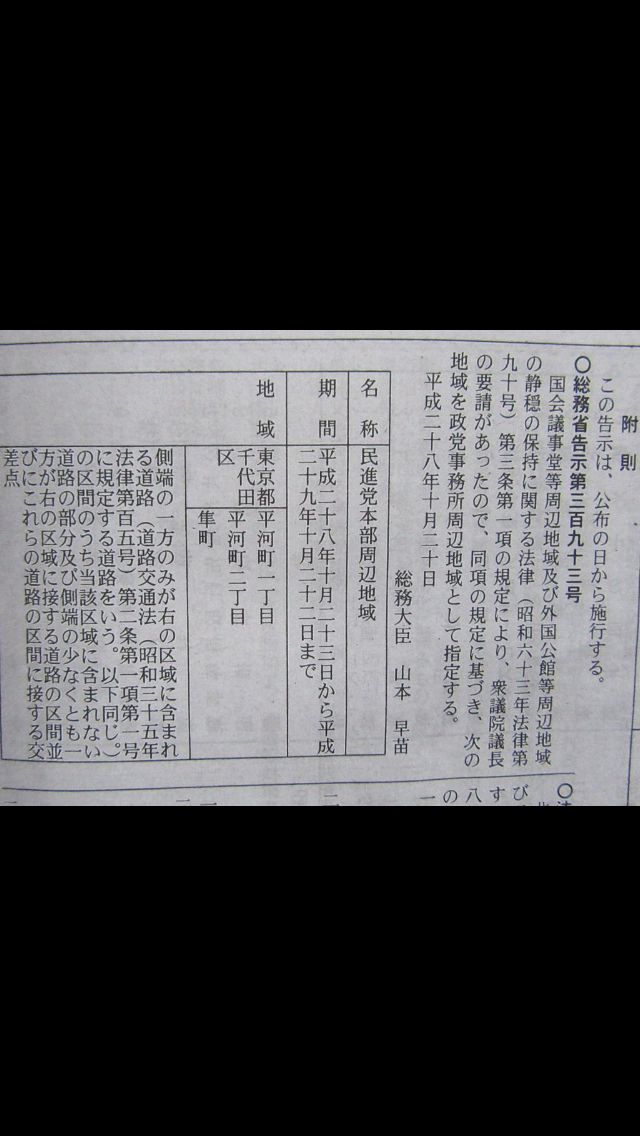 附則
この告示は、公布の日から施行する。
〇総務省告示第三百九十三号
国会議事堂等周辺地域及び外国公館等周辺地域
の静穏の保持に関する法律（昭和六十三年法律第
九十号）第三条第一項の規定により、衆議院議長
の要請があったので、同項の規定に基づき、次の
地域を政党事務所周辺地域として指定する。
平成二十八年十月二十日
総務大臣　山本　早苗
名称
民進党本部周辺地域
期間
平成二十八年十月二十三日から平成
二十九年十月二十二日まで
地域
東京都
千代田
区
平河町一丁目
平河町二丁目
隼町
側端の一方のみが右の区域に含まれ
る道路（道路交通法（昭和三十五年
法律第百五号）第二条第一項第一号
に規定する道路をいう。以下同じ。）
の区間のうち当該区域に含まれない
道路の部分及び側端の少なくとも一
方が右の区域に接する道路の区間並
びにこれらの道路の区間に接する交
差点
〇
び
す
八
の
一
二
一
二